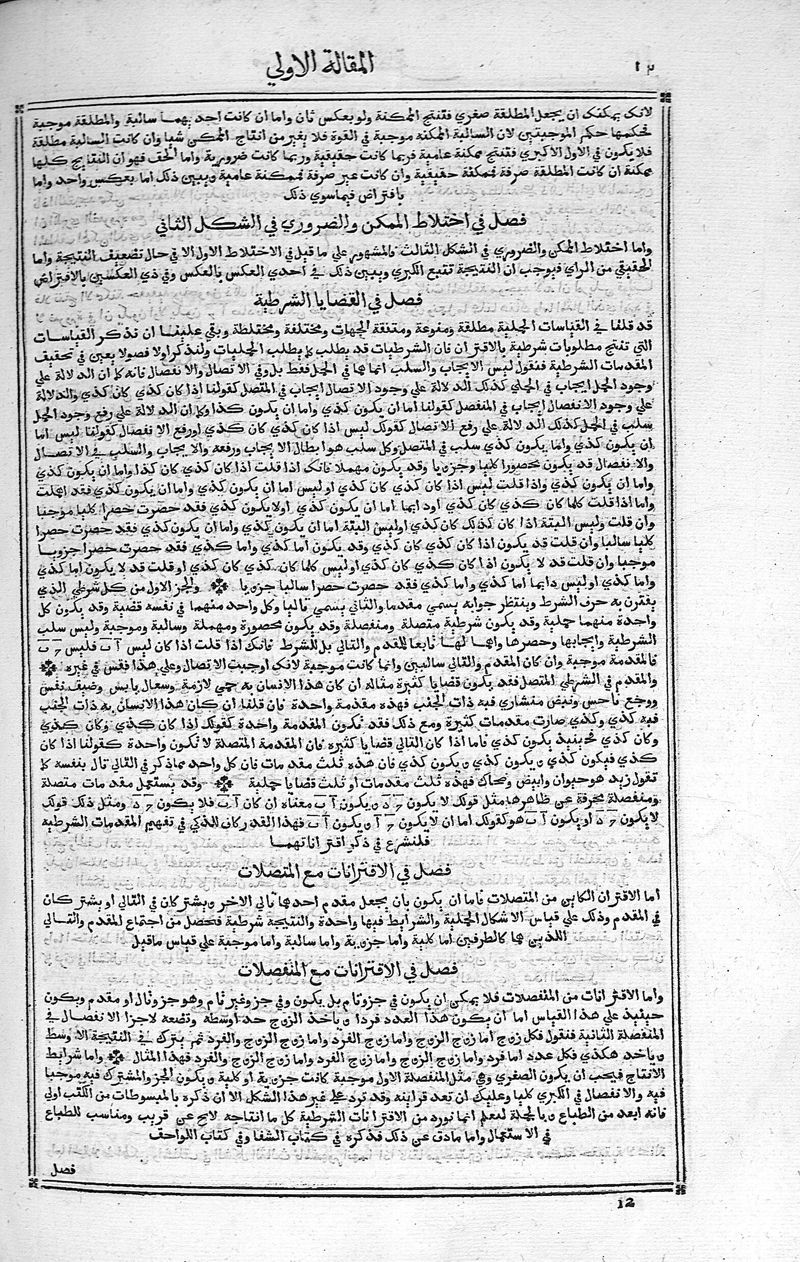 المقالة الاولي
لانك يمكنك ان يجعل المطلقة صغري فتنتج الممكنة ولو بعكس ثان واما ان كانت احد بهما سالبة والمطلقة موجبة
فحكمها حكم الموجبتين لان السالبة الممكنة موجبة في القوة فلا يغير من انتاج الممكن شيا وان كانت السالبة مطلقة
فلا يكون في الاول الاكبري فتنتج ممكنة عامية فربما كانت حقيقية وربما كانت ضرورية واما الحق فهو ان النتايج كلها
ممكنة ان كانت المطلقة صرفة فممكنة حقيقية وان كانت غير صرفة فممكنة عامية ويبين ذلك اما بعكس واحد واما
بافتراض فيما سوي ذلك
فصل في اختلاط الممكن والضروري في الشكل الثاني
واما اختلاط الممكن والضروري في الشكل الثالث فالمشهور علي ما قيل في الاختلاط الاول الا في حال تضعيف النتيجة واما
الحقيقي من الراي فيوجب ان النتيجة تتبع الكبري ويبين ذلك في احدي العكس بالعكس وفي ذي العكسين بالافتراض
فصل في القضايا الشرطية
قد قلنا في القياسات الحملية مطلقة ومنوعة ومتفقة الجهات ومختلفة ومختلطة وبقي علينا ان نذكر القياسات
التي تنتج مطلوبات شرطية بالاقتران فان الشرطيات قد يطلب كما يطلب الحمليات ولنذكر اولا فصولا يعين في تحقيف
المقدمات الشرطية فنقول ليس الايجاب والسلب انما هما في الحمل فقط بل وفي الاتصال والانفصال فانه كما ان الدلالة علي
وجود الحمل ايجاب في الحملي كذلك الدلالة علي وجود الاتصال ايجاب في المتصل كقولنا اذا كان كذي كان كذي والدلالة
علي وجود الانفصال ايجاب في المنفصل كقولنا اما ان يكون كذي واما ان يكون كذا وكما ان الدلالة علي رفع وجود الحمل
سلب في الحمل كذلك الدلالة علي رفع الاتصال كقولك ليس اذا كان كذي كان كذي او رفع الانفصال كقولنا ليس اما
ان يكون كذي واما يكون كذي سلب في المتصل وكل سلب هو ابطال الايجاب ورفعه والايجاب والسلب في الاتصال
والانفصال قد يكون محصورا كليا وجزءيا وقد يكون مهملا فانك اذا قلت اذا كان كذي كان كذا واما ان يكون كذي
واما ان يكون كذي واذا قلت ليس اذا كان كذي كان كذي او ليس اما ان يكون كذي واما ان يكون كذي فقد اهملت
واما اذا قلت كلما كان كذي كان كذي او دايما اما ان يكون كذي او لا يكون كذي فقد حصرت حصرا كليا موجبا
وان قلت وليس البتة اذا كان كذلك كان كذي او ليس البتة اما ان يكون كذي واما ان يكون كذي فقد حصرت حصرا
كليا سالبا وان قلت قد يكون اذا كان كذي كان كذي وقد يكون اما كذي واما كذي فقد حصرت حصرا جزويا
موجبا وان قلت قد لا يكون اذا كان كذي كان كذي او ليس كلما كان كذي كان كذي او قلت قد لا يكون اما كذي
واما كذي او ليس دايما اما كذي واما كذي فقد حصرت حصرا سالبا جزءيا والجز الاول من كل شرطي الذي
يقترن به حرف الشرط وينتظر جوابه يسمي مقدما والثاني يسمي تاليا وكل واحد منهما في نفسه قضية وقد يكون كل
واحدة منهما حملية وقد يكون شرطية متصلة ومنفصلة وقد يكون محصورة ومهملة وسالبة وموجبة وليس سلب
الشرطية وايجابها وحصرها واهمالها تابعا للمقدم والتالي بل للشرط فانك اذا قلت اذا كان ليس آب فليس ج ب
فالمقدمة موجبة وان كان المقدم والتالي سالبين وانما كانت موجبة لانك اوجبت الاتصال وعلي هذا فقس في غيره
والمقدم في الشرطي المتصل قد يكون قضايا كثيرة مثاله ان كان هذا الانسان به حمي لازمة وسعال يابس وضيف نفس
ووجع ناخس ونبض منشاري فبه ذات الجنب فهذه مقدمة واحدة فان قلنا ان كان هذا الانسان به ذات الجنب
فبه كذي وكذي صارت مقدمات كثيرة ومع ذلك فقد تكون المقدمة واحدة كقولك اذا كان كذي وكان كذي
وكان كذي فحينيذ يكون كذي فاما اذا كان التالي قضايا كثيرة فان المقدمة المتصلة لا تكون واحدة كقولنا اذا كان
كذي فيكون كذي ويكون كذي ويكون كذي فان هذه ثلث مقدمات فان كل واحد مما ذكر في التالي تال بنفسه كما
تقول زيد هو حيوان وابيض وضحاك فهذه ثلث مقدمات او ثلث قضايا حملية وقد يستعمل مقدمات متصلة
ومنفصلة محرفة عن ظاهرها مثل قولك لا يكون ج د ويكون آب معناه ان كان آب فلا يكون ج د ومثل ذلك قولك
لا يكون ج د او يكون آب هو كقولك اما ان لا يكون ج آ ويكون آب فهذا القدر كاف للذي في تفهيم المقدمات الشرطية
فلنشرع في ذكر اقتراناتهما
فصل في الاقترانات مع المتصلات
اما الاقتران الكاين من المتصلات فاما ان يكون بان يجعل مقدم احدهما تالي الاخر ويشتركان في التالي او يشتركان
في المقدم وذلك علي قياس الاشكال الحملية والشرايط فيها واحدة والنتيجة شرطية فتحصل من اجتماع المقدم والتالي
اللذين هما كالطرفين اما كلية واما جزءية واما سالبة واما موجبة علي قياس ما قيل
فصل في الاقترانات مع المنفصلات
واما الاقترانات من المنفصلات فلا يمكن ان يكون في جزو تام بل يكون وفي جز وغير تام وهو جز وتال او مقدم ويكون
حينيذ علي هذا القياس اما ان يكون هذا العدد فردا وياخذ الزوج حد اوسطه ونضعه لاجزا الانفصال في
المنفصلة الثانية فنقول فكل زوج اما زوج الزوج واما زوج الفرد واما زوج الزوج والفرد ثم يترك في النتيجة الاوسط
وياخد هكذي فكل عدد اما فرد واما زوج الزوج واما زوج الفرد واما زوج الزوج والفرد فهذا المثال واما شرايط
الانتاج فيجب ان يكون الصغري وهي مثل المنفصلة الاول موجبة كانت جزءية او كلية ويكون الجز والمشترك فيه موجبا
فيه والانفصال في الكبري كليا وعليك ان تعد قراينه وقد ترد علي غير هذا الشكل الا ان ذكره بالمبسوطات من الكتب اولي
فانه ابعد من الطباع وبالجملة ليعلم انما نورد من الاقترانات الشرطية كل ما انتاجه لايح عن قريب ومناسب للطباع
في الاستعمال واما ما دق عن ذلك فذكره في كتاب الشفا وفي كتاب اللواحف
فصل
12